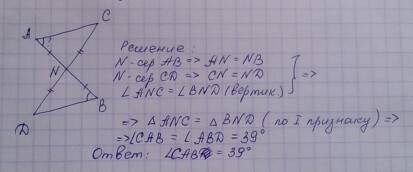 C
A
N
B
D
Решение:
N-сер AB => AN = NB
N-сер CD => CN = ND
∠ANC = ∠BND (вертик) } =>
=> △ANC = △BND (по I признаку) =>
=> ∠CAB = ∠ABD = 39°
Ответ: ∠CAB = 39°